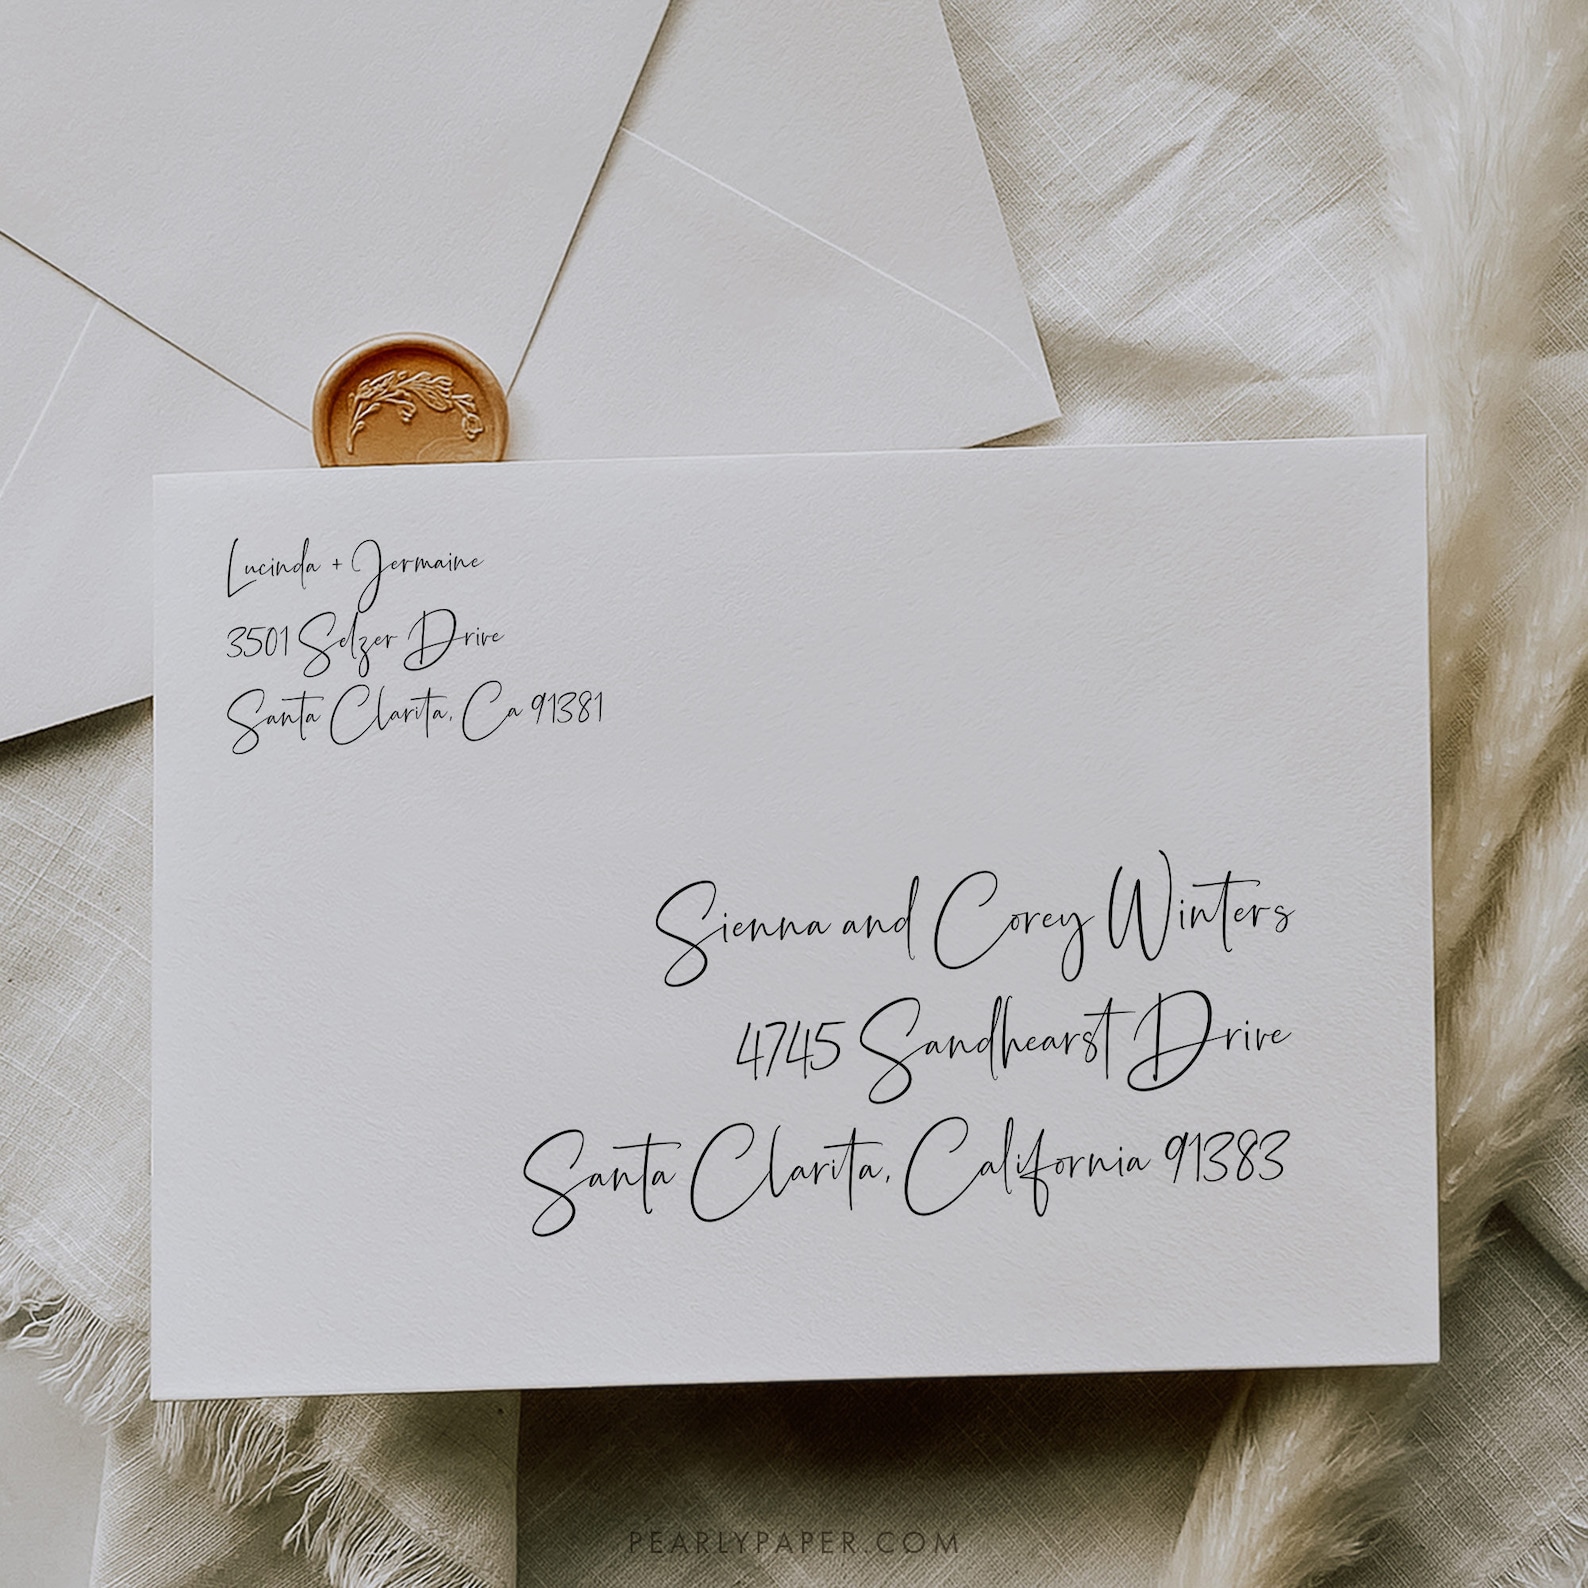 Lucinda + Jermaine
3501 Selzer Drive
Santa Clarita, Ca 91381
Sienna and Corey Winters
4745 Sandhearst Drive
Santa Clarita, California 91383
PEARLYPAPER.COM